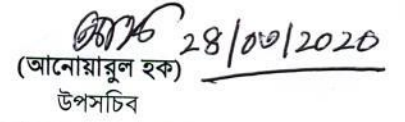 28/06/2020
(আনোয়ারুল হক)
উপসচিব